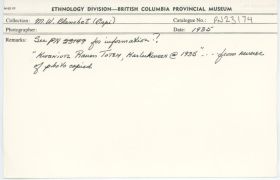 ETHNOLOGY DIVISION—BRITISH COLUMBIA PROVINCIAL MUSEUM
Collection: M.W. Blanchet (Capi) Catalogue No.: PN23174
Photographer: Date: 1935
Remarks: See PN for information?!
"Kwakiutl Raven Totem, @ 1935" ... from reverse
of photo copied